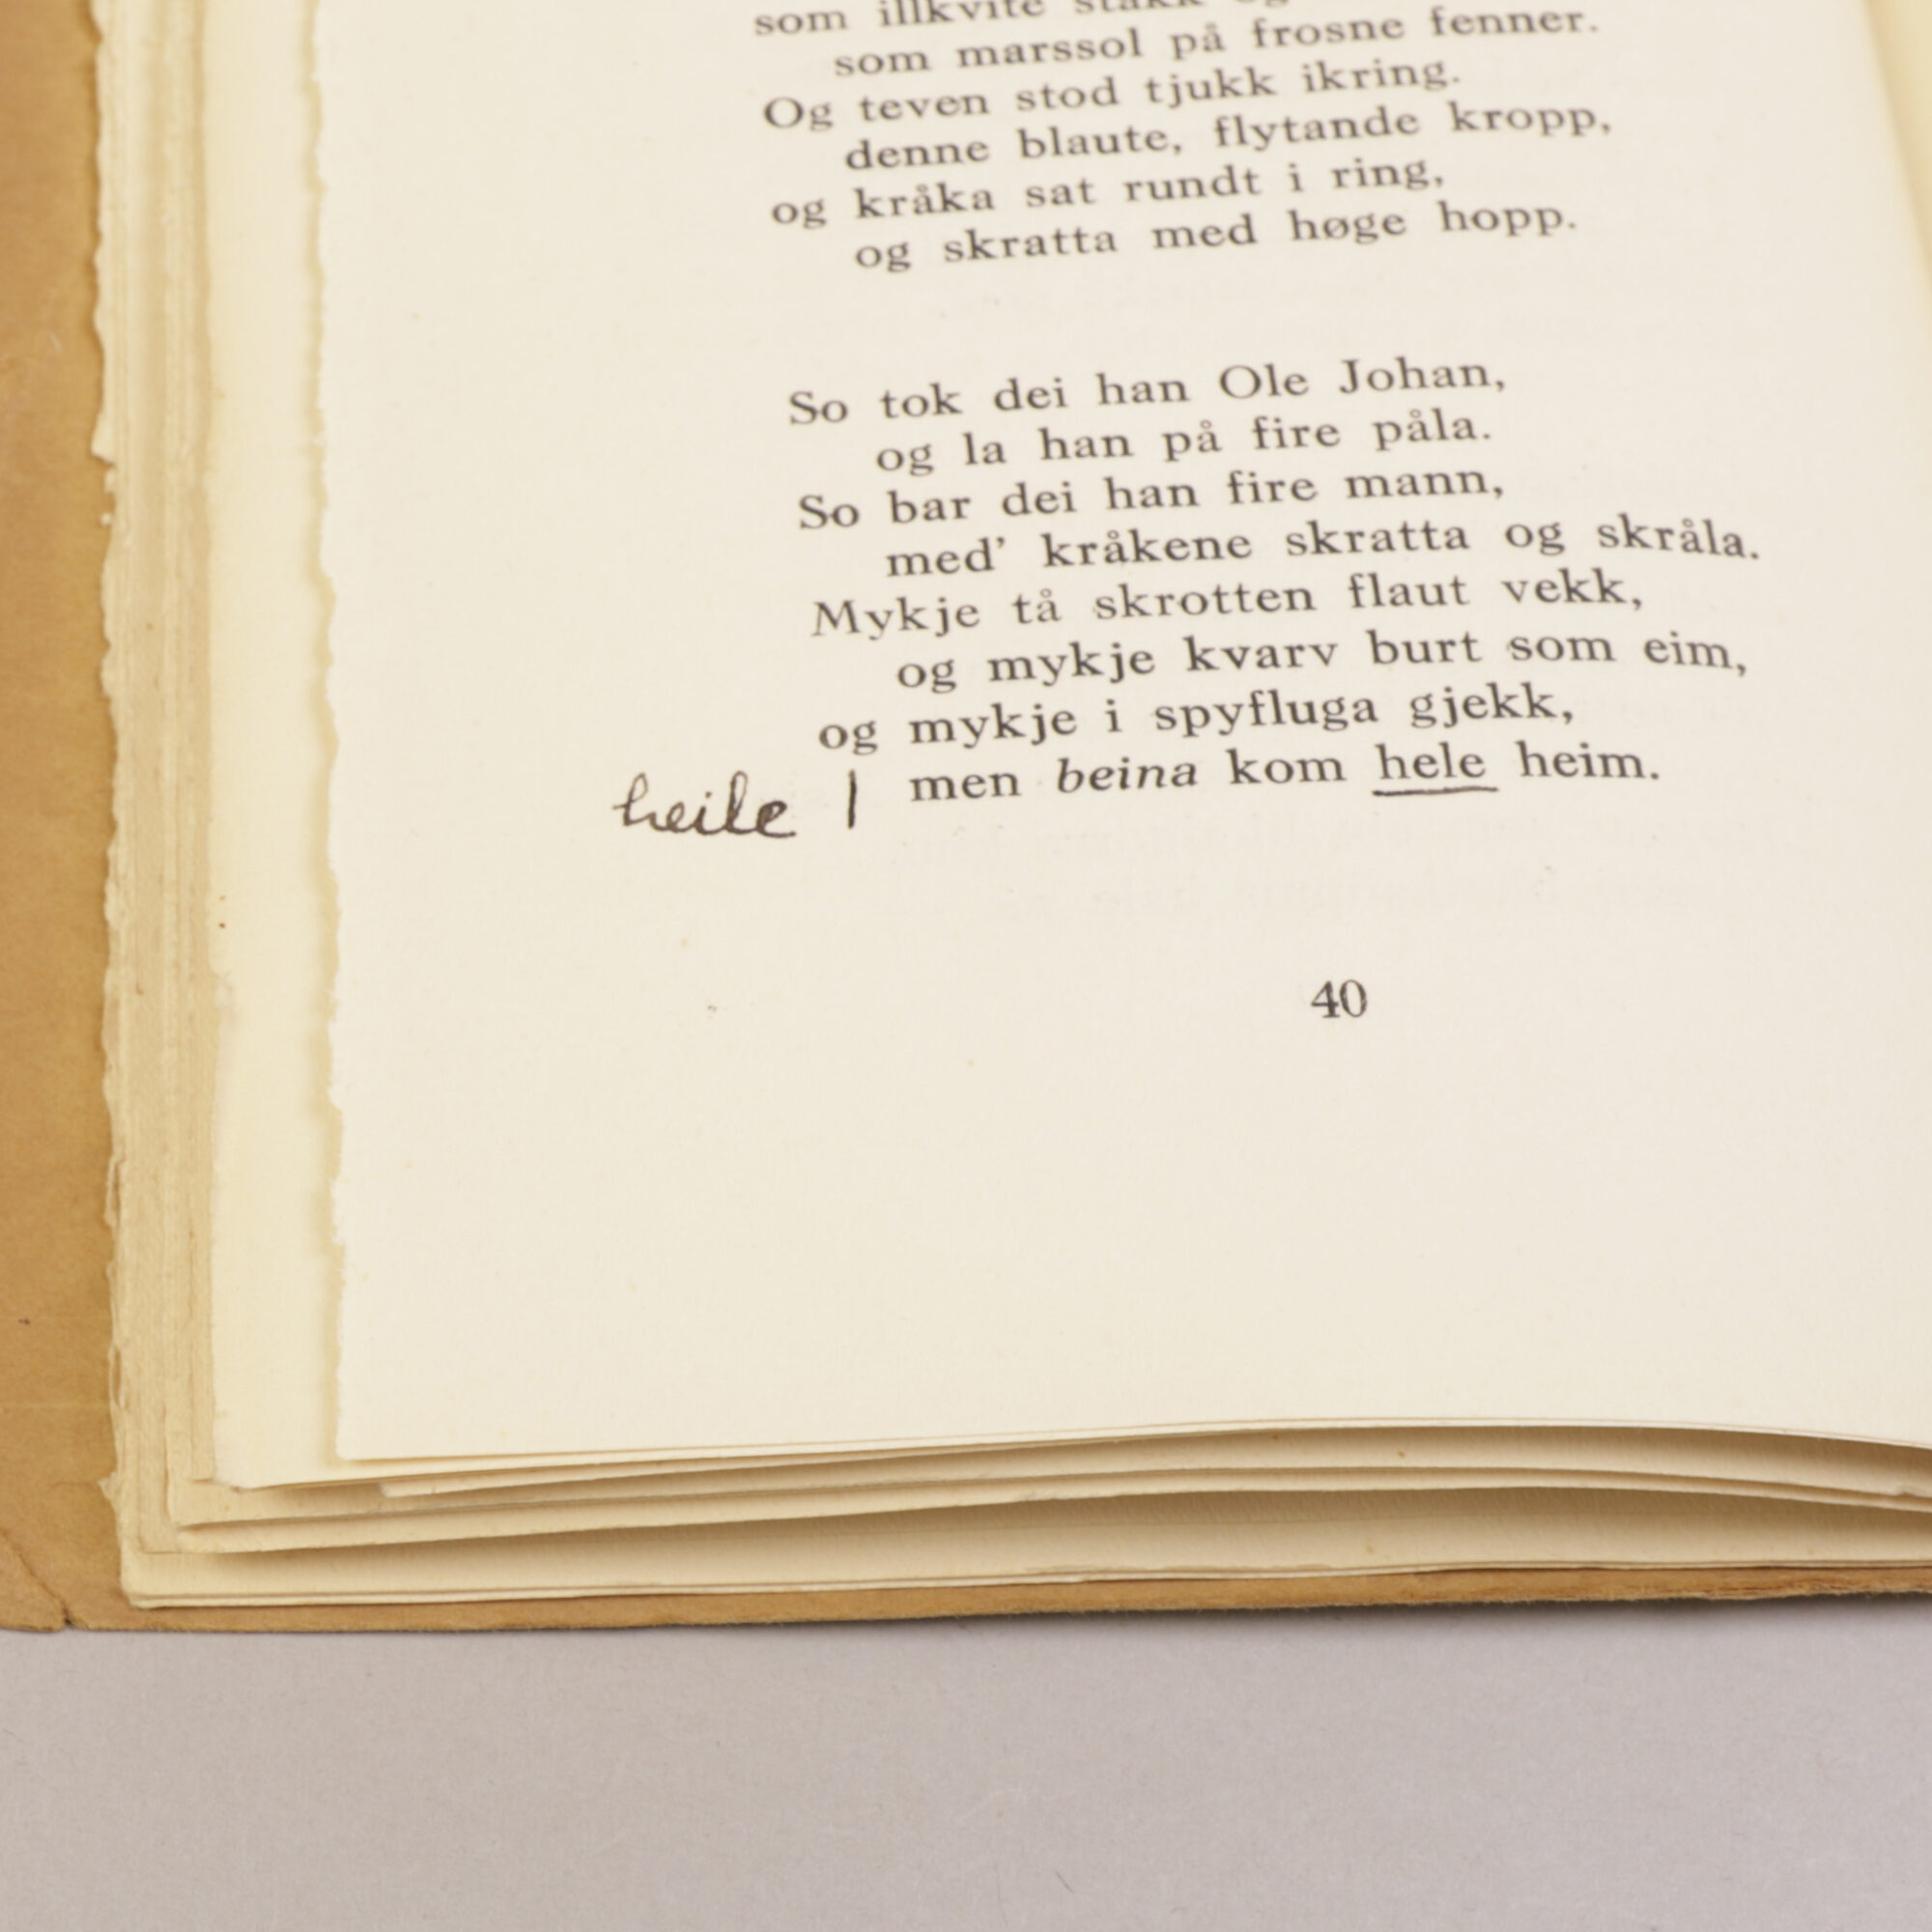 som illkvite stakk
som marssol på frosne fenner.
Og teven stod tjukk ikring.
denne blaute, flytande kropp,
og kråka sat rundt i ring,
og skratta med høge hopp.
So tok dei han Ole Johan,
og la han på fire påla.
So bar dei han fire mann,
med’ kråkene skratta og skråla.
Mykje tå skrotten flaut vekk,
og mykje kvarv burt som eim,
og mykje i spyfluga gjekk,
heile | men beina kom hele heim.
40